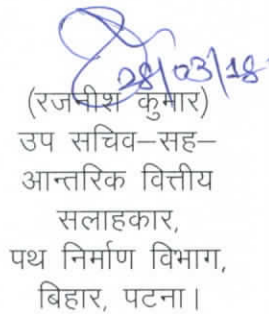 28/03/18
(रजनीश कुमार)
उप सचिव–सह–
आन्तरिक वित्तीय
सलाहकार,
पथ निर्माण विभाग,
बिहार, पटना।